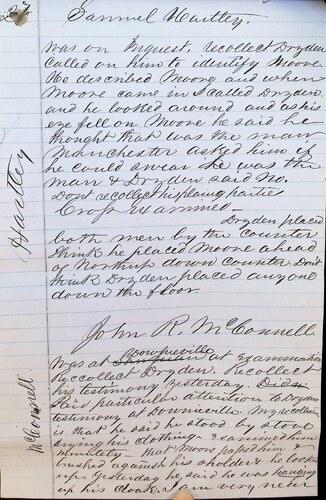 Samuel Hartley.
Hartley
Was on Inquest, recollect Dryden
called on him to identify Moore.
He described Moore and when
Moore came in I called Dryden
and he looked around and as his
eye fell on Moore he said he
thought that was the man
Manchester asked him if
he could swear he was the
man & Dryden said No.
Dont recollect his placing parties
Cross examined—
Dryden placed
both men by the counter
think he placed Moore ahead
of Northup down counter Dont
think Dryden placed anyone
down the floor.
John R. McConnell.
McConnell
Downieville
Was at at examination
Reccollect Dryden. Recollect
his testimony yesterday.
particular attention to Drydens
testimony at Downieville. My recollection
is that he said he stood by stove
drying his clothing - examined him
minutely - that Moore passed him &
brushed against his sholder & he looked
up. Yesterday he said he was hanging
up his cloak. Same very near